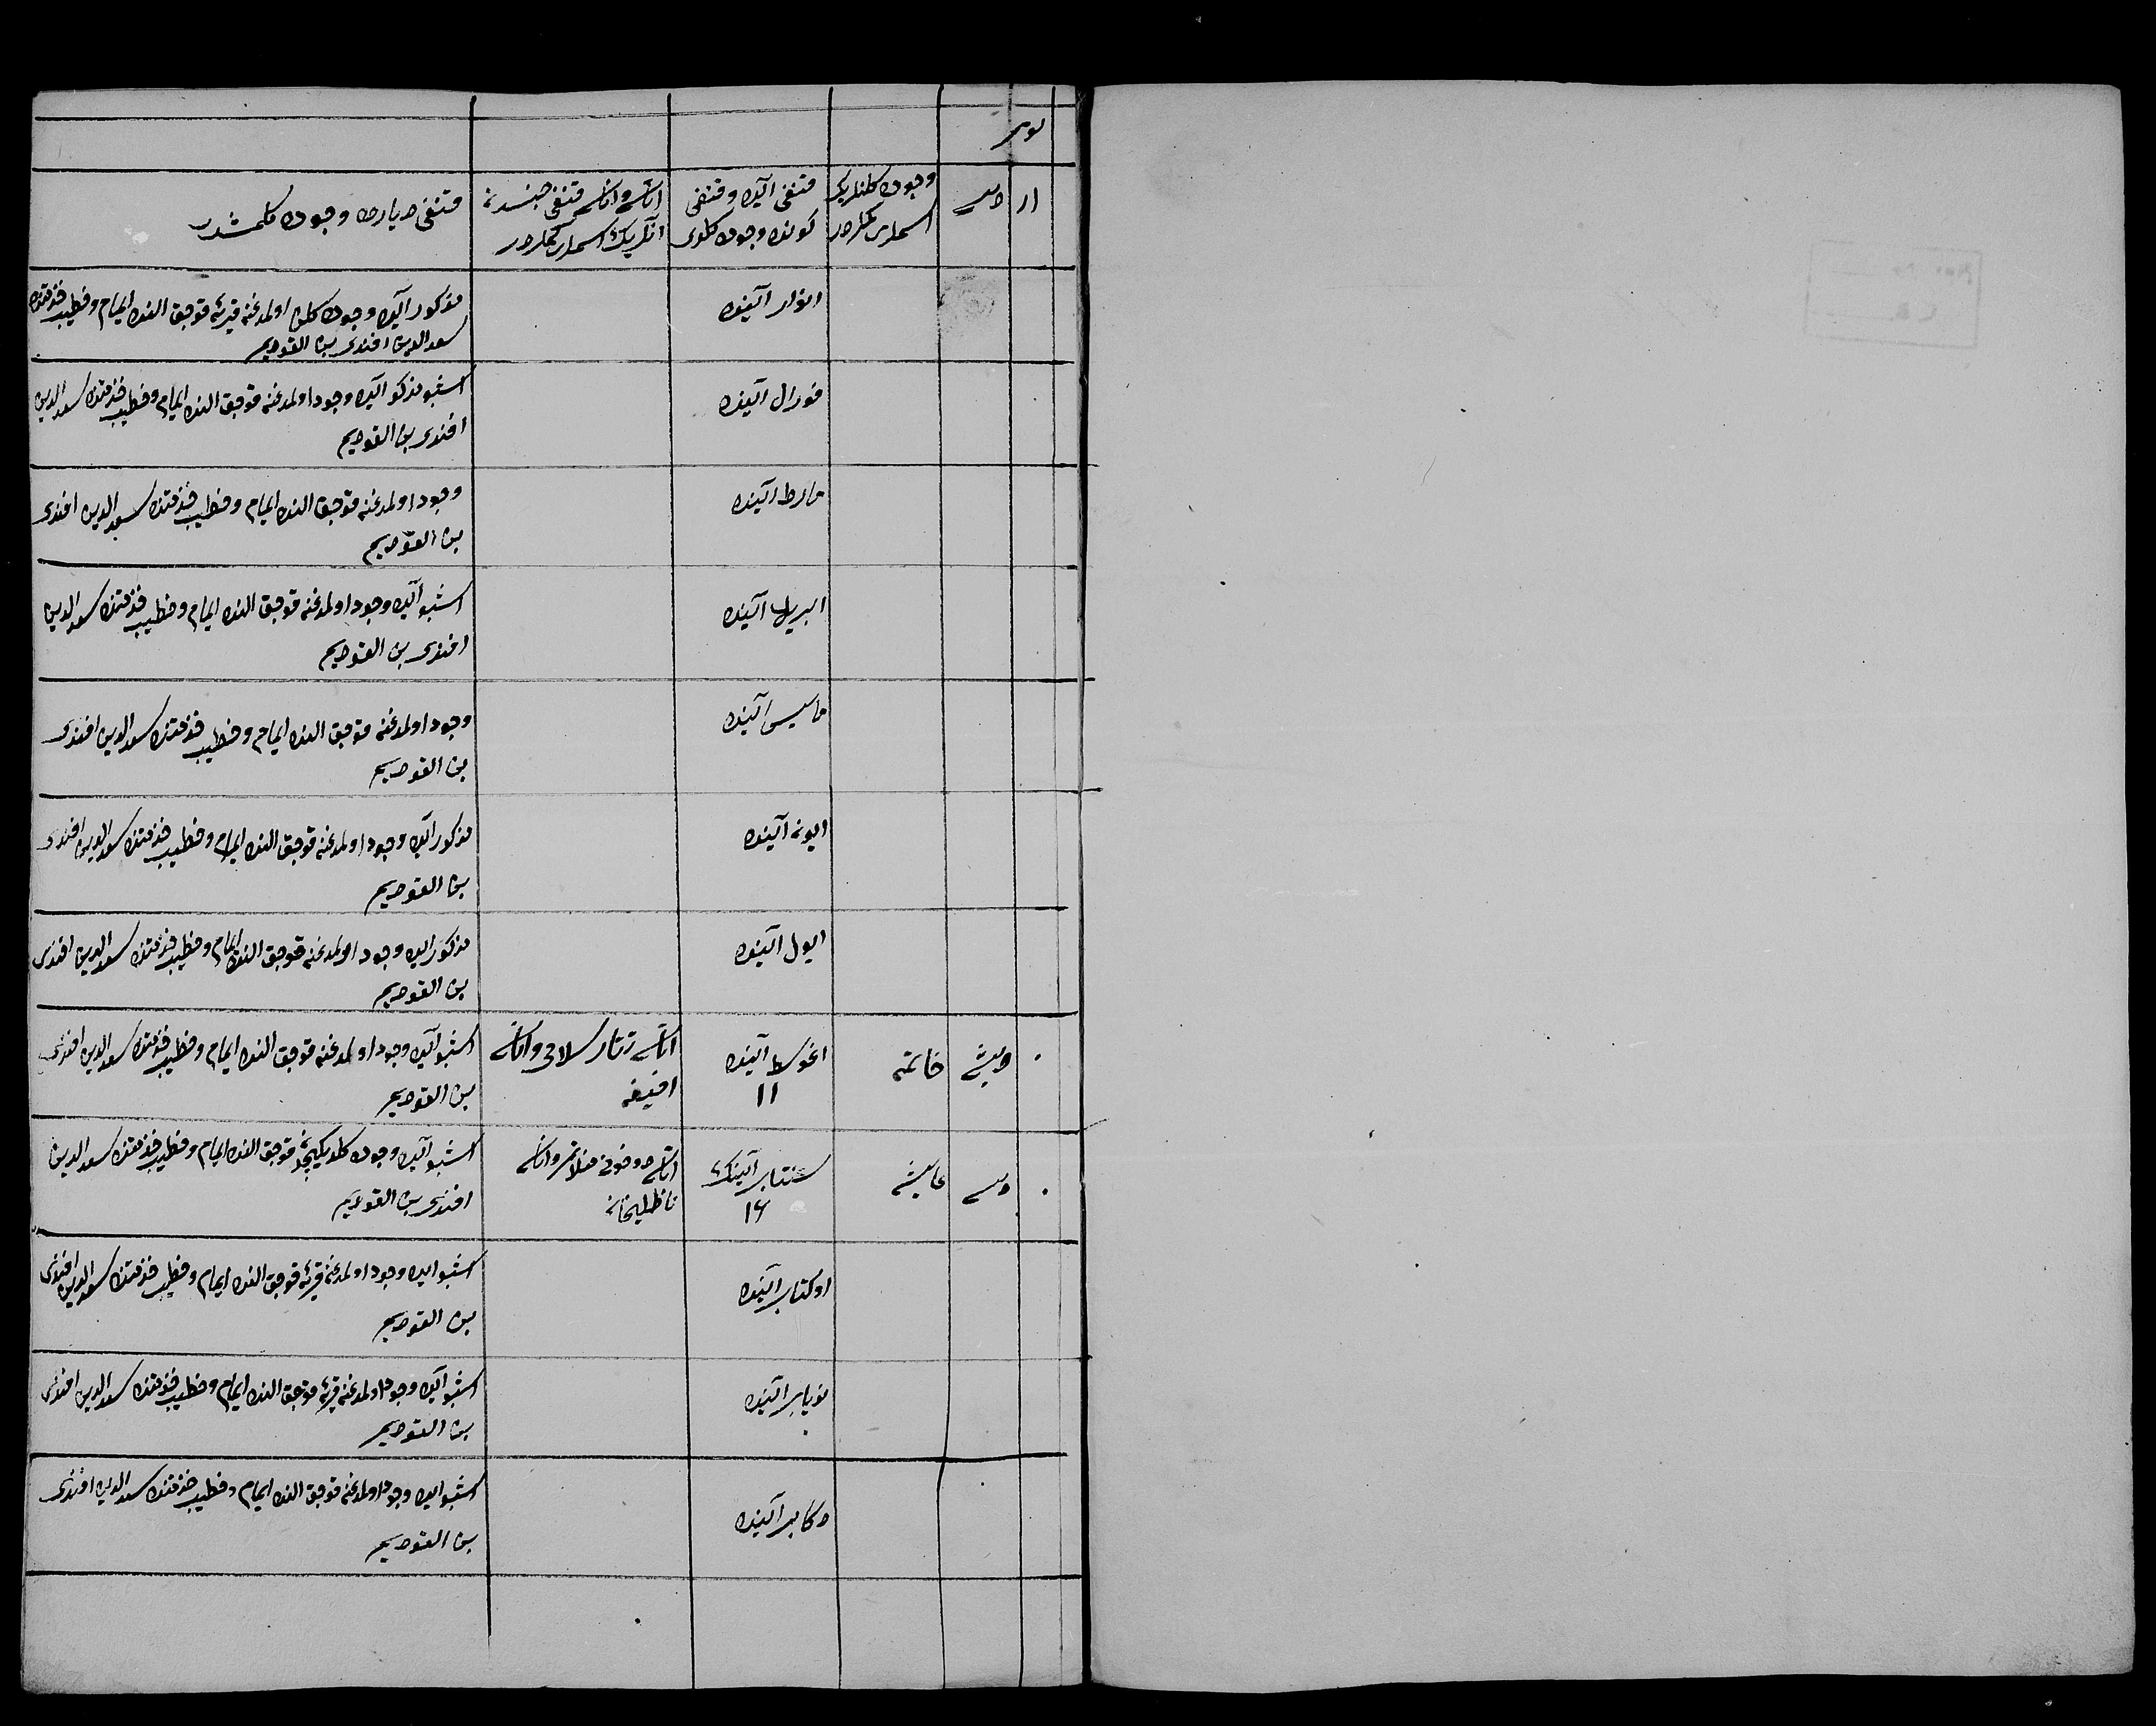 نومر
ار
دیشی
وجوده کلنلرینک
اسملری کملردر
قنغی آیده وقنغی
کونده وجوده کلوی
اتاسی واناسی قنغی جنسدنه
آنلرینک اسملری کملردر
قنغی دیارده وجوده کلمشدر
انوار آینده
مذکور آیده وجوده کلن اولمدغنه قریه قوجق النده ایمام وخطیب خذمتنده
سعدالدین افندی بن القودیم
فورال آینده
اشبو مذکور آیده وجود اولمدغنه قوجق النده ایمام وخطیب خذمتنده سعدالدین
افندی بن القودیم
مارط آینده
وجود اولمدغنه قوجق النده ایمام وخطیب خذمتنده سعدالدین افندی
بن القودیم
ابریل آینده
اشبو آیده وجود اولمدغنه قوجق النده ایمام وخطیب خذمتنده سعدالدین
افندی بن القودیم
مایس آینده
وجود اولمدغنه قوجق النده ایمام وخطیب خذمتنده سعدالدین افندی
بن القودیم
ایونه آینده
مذکور آیده وجود اولمدغنه قوجق النده ایمام وخطیب خذمتنده سعدالدین افندی
بن القودیم
ایول آینده
مذکور آیده وجود اولمدغنه قوجق النده ایمام وخطیب خذمتنده سعدالدین افندی
بن القودیم
دیشی
خاتمه
اغوسط آینده
۱۱
اتاسی واناسی
اشبو آیده وجود اولمدغنه قوجق النده ایمام وخطیب خذمتنده سعدالدین افندی
بن القودیم
عایشه
سنتابر آینک
۱۶
اتاسی واناسی
اشبو آیده وجوده قوجق النده ایمام وخطیب خذمتنده سعدالدین
افندی بن القودیم
اوکتابر آینده
اشبو آیده وجود اولمدغنه قریه قوجق النده ایمام وخطیب خذمتنده سعدالدین افندی
بن القودیم
نویابر آینده
اشبو آیده وجود اولمدغنه قریه قوجق النده ایمام وخطیب خذمتنده سعدالدین افندی
بن القودیم
دکابر آینده
اشبو آیده وجود اولمدغنه قوجق النده ایمام وخطیب خذمتنده سعدالدین افندی
بن القودیم